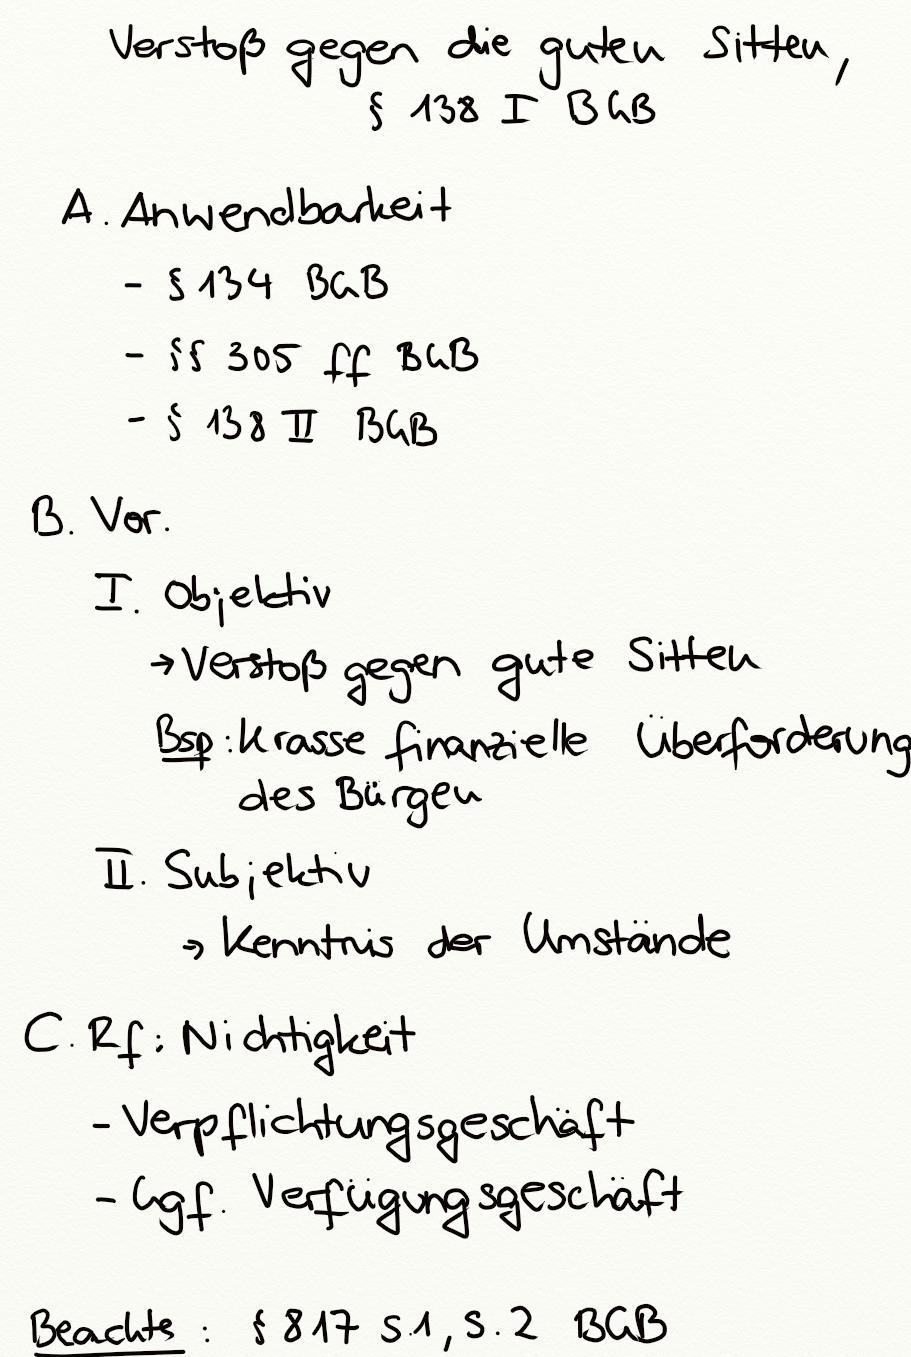 Verstoß gegen die guten Sitten,
§ 138 I BGB
A. Anwendbarkeit
- § 134 BGB
- §§ 305 ff BGB
- § 138 II BGB
B. Vor.
I. Objektiv
→ Verstoß gegen gute Sitten
Bsp: Krasse finanzielle Überforderung
des Bürgen
II. Subjektiv
→ Kenntnis der Umstände
C. Rf: Nichtigkeit
- Verpflichtungsgeschäft
- Ggf. Verfügungsgeschäft
Beachte: § 817 S.1, S.2 BGB